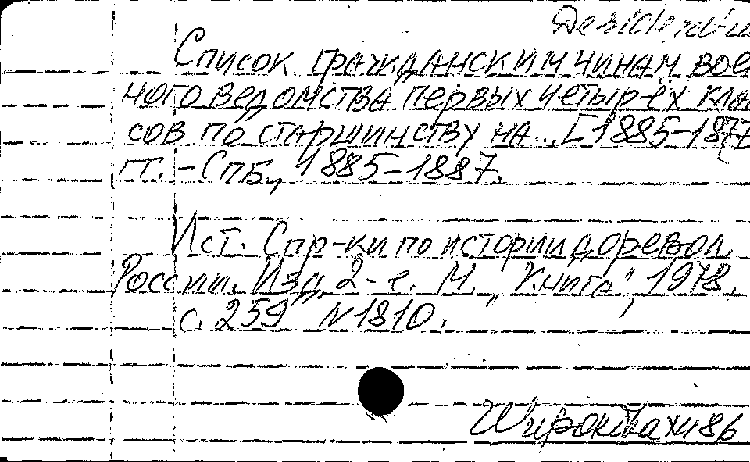 Desiderata
Список гражданским чинам воен
ного ведомства первых четырех клас
сов по старшинству на...[1885-1887]
гг. - СПб., 1885-1887.
Ист. Спр-ки по истории доревол.
России. Изд. 2-е. М. "Книга", 1978.
с. 259 N 1810.
XII 86